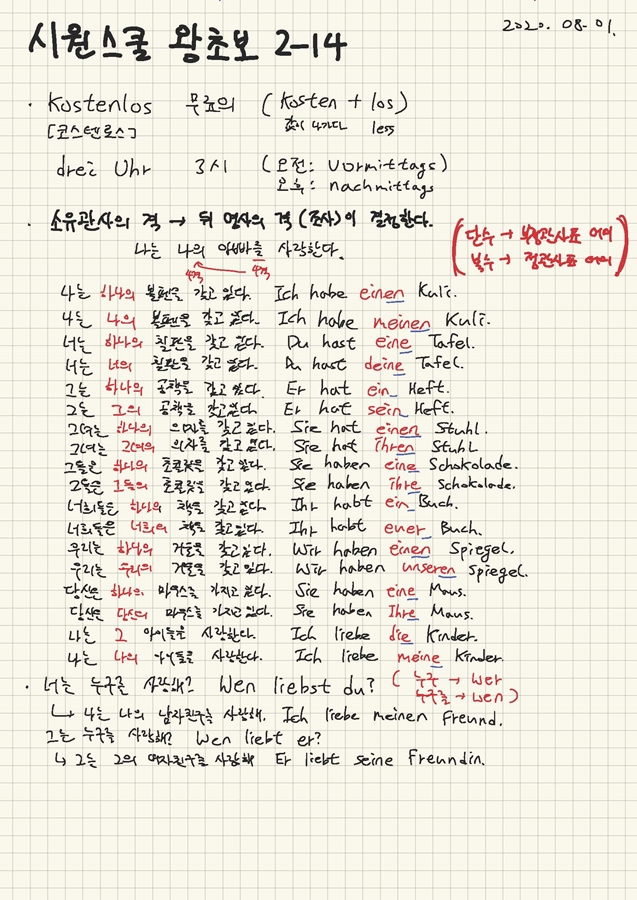 시원스쿨 왕초보 2-14
2020. 08. 01.
· kostenlos 무료의 (kosten + los)
[코스텐로스] 값이 나가다 less
drei Uhr 3시 (오전: vormittags)
오후: nachmittags
· 소유관사의 격 → 뒤 명사의 격(조사)이 결정한다.
나는 나의 아빠를 사랑한다.
4격 ← 4격
(단수 → 부정관사표 어미
복수 → 정관사표 어미)
나는 하나의 볼펜을 갖고 있다. Ich habe einen Kuli.
나는 나의 볼펜을 갖고 있다. Ich habe meinen Kuli.
너는 하나의 칠판을 갖고 있다. Du hast eine Tafel.
너는 너의 칠판을 갖고 있다. Du hast deine Tafel.
그는 하나의 공책을 갖고 있다. Er hat ein Heft.
그는 그의 공책을 갖고있다. Er hat sein Heft.
그녀는 하나의 의자를 갖고 있다. Sie hat einen Stuhl.
그녀는 그녀의 의자를 갖고 있다. Sie hat ihren Stuhl
그들은 하나의 초콜릿을 갖고 있다. Sie haben eine Schokolade.
그들은 그들의 초콜릿을 갖고 있다. Sie haben ihre Schokolade.
너희들은 하나의 책을 갖고 있다. Ihr habt ein Buch.
너희들은 너희의 책을 갖고있다. Ihr habt euer Buch.
우리는 하나의 거울을 갖고있다. Wir haben einen Spiegel.
우리는 우리의 거울을 갖고있다. Wir haben unseren Spiegel.
당신은 하나의 마우스를 가지고 있다. Sie haben eine Maus.
당신은 당신의 마우스를 가지고 있다. Sie haben Ihre Maus.
나는 그 아이들을 사랑한다. Ich liebe die Kinder.
나는 나의 아이들을 사랑한다. Ich liebe meine Kinder.
· 너는 누구를 사랑해? Wen liebst du? (누구 → wer
누구를 → wen)
↳ 나는 나의 남자친구를 사랑해. Ich liebe meinen Freund.
그는 누구를 사랑해? Wen liebt er?
↳ 그는 그의 여자친구를 사랑해 Er liebt seine Freundin.